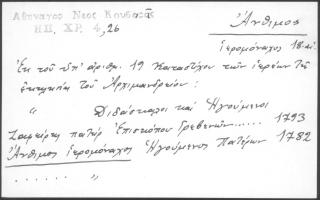 Αθηναγος Νεος Κουβαρᾶς
ΗΠ, ΧΡ. 4, 26
Ἄνθιμος
ἱερομόναχος
Ἐκ τοῦ ὑπ' ἀριθμ. 19 Καταστίχου τῶν ἱερέων τῆς
τοῦ Ἀρχιμανδρείου:
" Διδάσκαλοι καὶ Ἡγούμενοι
Ζαφείρης πατὴρ Ἐπισκόπου Γρεβενῶν..... 1793
Ἄνθιμος ἱερομόναχος Ἡγούμενος Πατέρων 1782
...... "